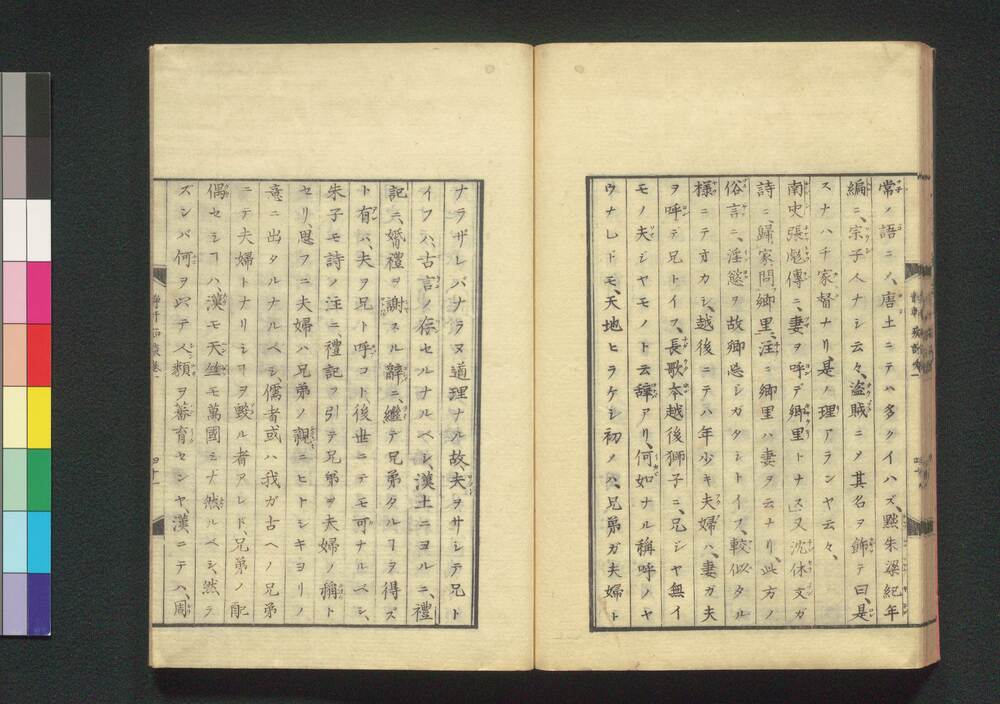 常ノ語ニメ、唐土ニテハ多クイハズ、黙朱梁紀年
編ニ、宗子人ナシ云々、盗賊ニメ其名ヲ飾テ曰、是
スナハチ家督ナリ、是ノ理アランヤ云々、
南史張彪傳ニ、妻ヲ呼デ郷里トナス、又沈休文ガ
詩ニ、歸家問郷里、注ニ郷里ハ妻ヲ云ナリ、此方ノ
俗言ニ、淫慾ヲ故郷忘シガタシトイフ、較似タル
様ニテオカシ、越後ニテハ年少キ夫婦ハ、妻ガ夫
ヲ呼テ兄トイフ、長歌本越後獅子ニ、兄シヤ無イ
モノ夫シヤモノト云辞アリ、何如ナル稱呼ノヤ
ウナレドモ、天地ヒラケシ初メハ、兄弟ガ夫婦ト
ナラザレバナラヌ道理ナル故、夫ヲサシテ兄ト
イフハ、古言ノ存セルナルベシ、漢土ニヨルニ、禮
記ニ、婚禮ヲ謝スル辞ニ、繼テ兄弟タルヿヲ得ズ
ト有ハ、夫ヲ兄ト呼コト、後世ニテモ可ナルベシ、
朱子モ詩ノ注ニ、禮記ヲ引テ兄弟ヲ夫婦ノ稱ト
セリ、思フニ夫婦ハ兄弟ノ親ニヒトシキヨリノ
意ニ出タルナルベシ、儒者或ハ我ガ古ヘノ兄弟
ニテ夫婦トナリシヿヲ毀ル者アレド、兄弟ノ配
偶セシヿハ、漢モ天竺モ萬國ミナ然ルベシ、然ラ
ズンバ何ヲ以テ人類ヲ蕃育センヤ、漢ニテハ、周